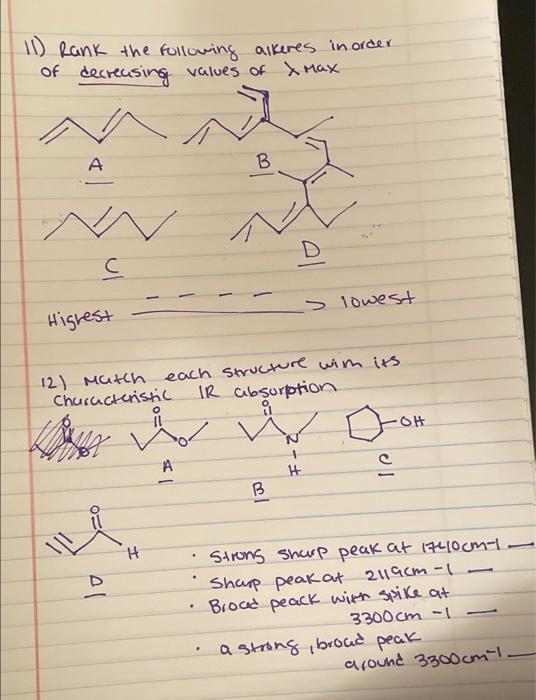 11) Rank the following alkenes in order
of decreasing values of λ max
A
B
C
D
Highest
lowest
12) Match each structure with its
characteristic IR absorption
O
O
O
A
O
N
H
B
OH
C
O
H
D
· Strong sharp peak at 1740cm-1
· Sharp peak at 2119cm-1
· Broad peack with spike at
3300cm-1
· a strong, broad peak
around 3300cm-1